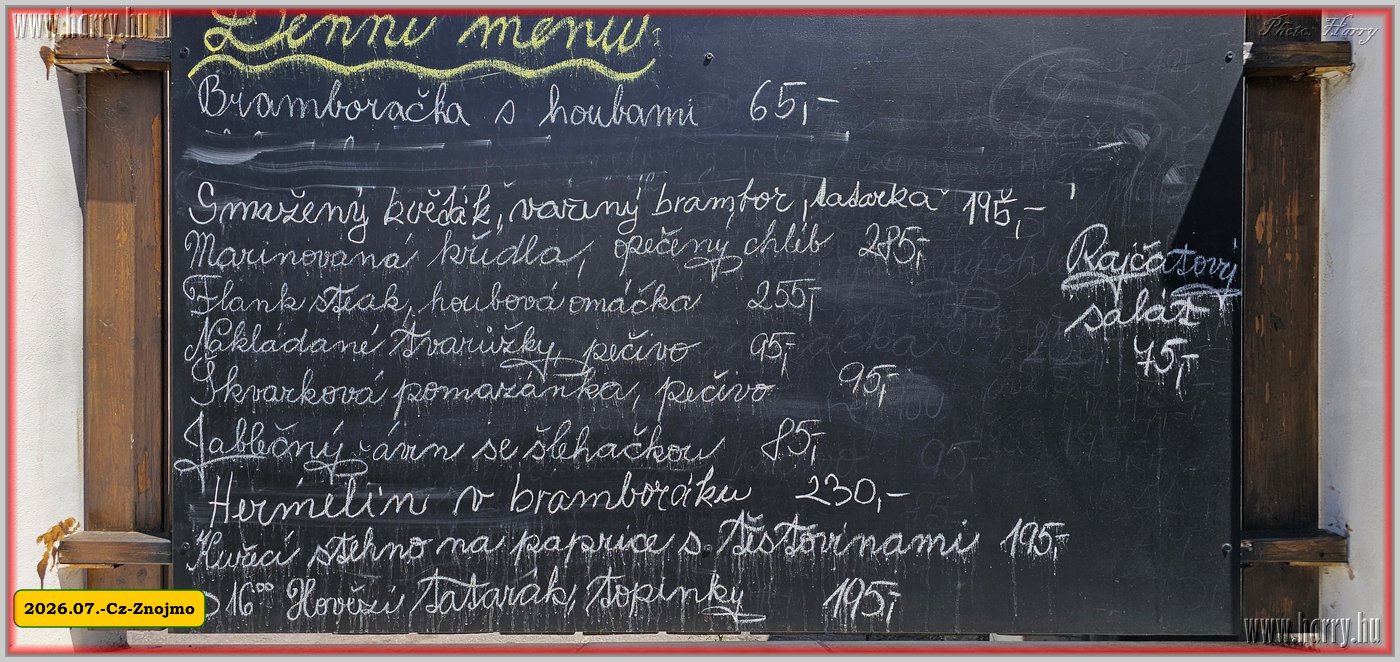 www.horry.hu
Photo: Horry
Denní menu
Bramboračka s houbami 65,-
Smažený květák, vařený brambor, tatarka 195,-
Marinovaná křídla, opečený chléb 285,-
Rajčatový
salát
75,-
Flank steak, houbová omáčka 255,-
Nakládané tvarůžky, pečivo 95,-
Škvarková pomazánka, pečivo 95,-
Jablečný závin se šlehačkou 85,-
Hermelín v bramboráku 230,-
Kuřecí stehno na paprice s těstovinami 195,-
16⁰⁰ Hovězí tatarák, topinky 195,-
2026.07.-Cz-Znojmo
www.horry.hu